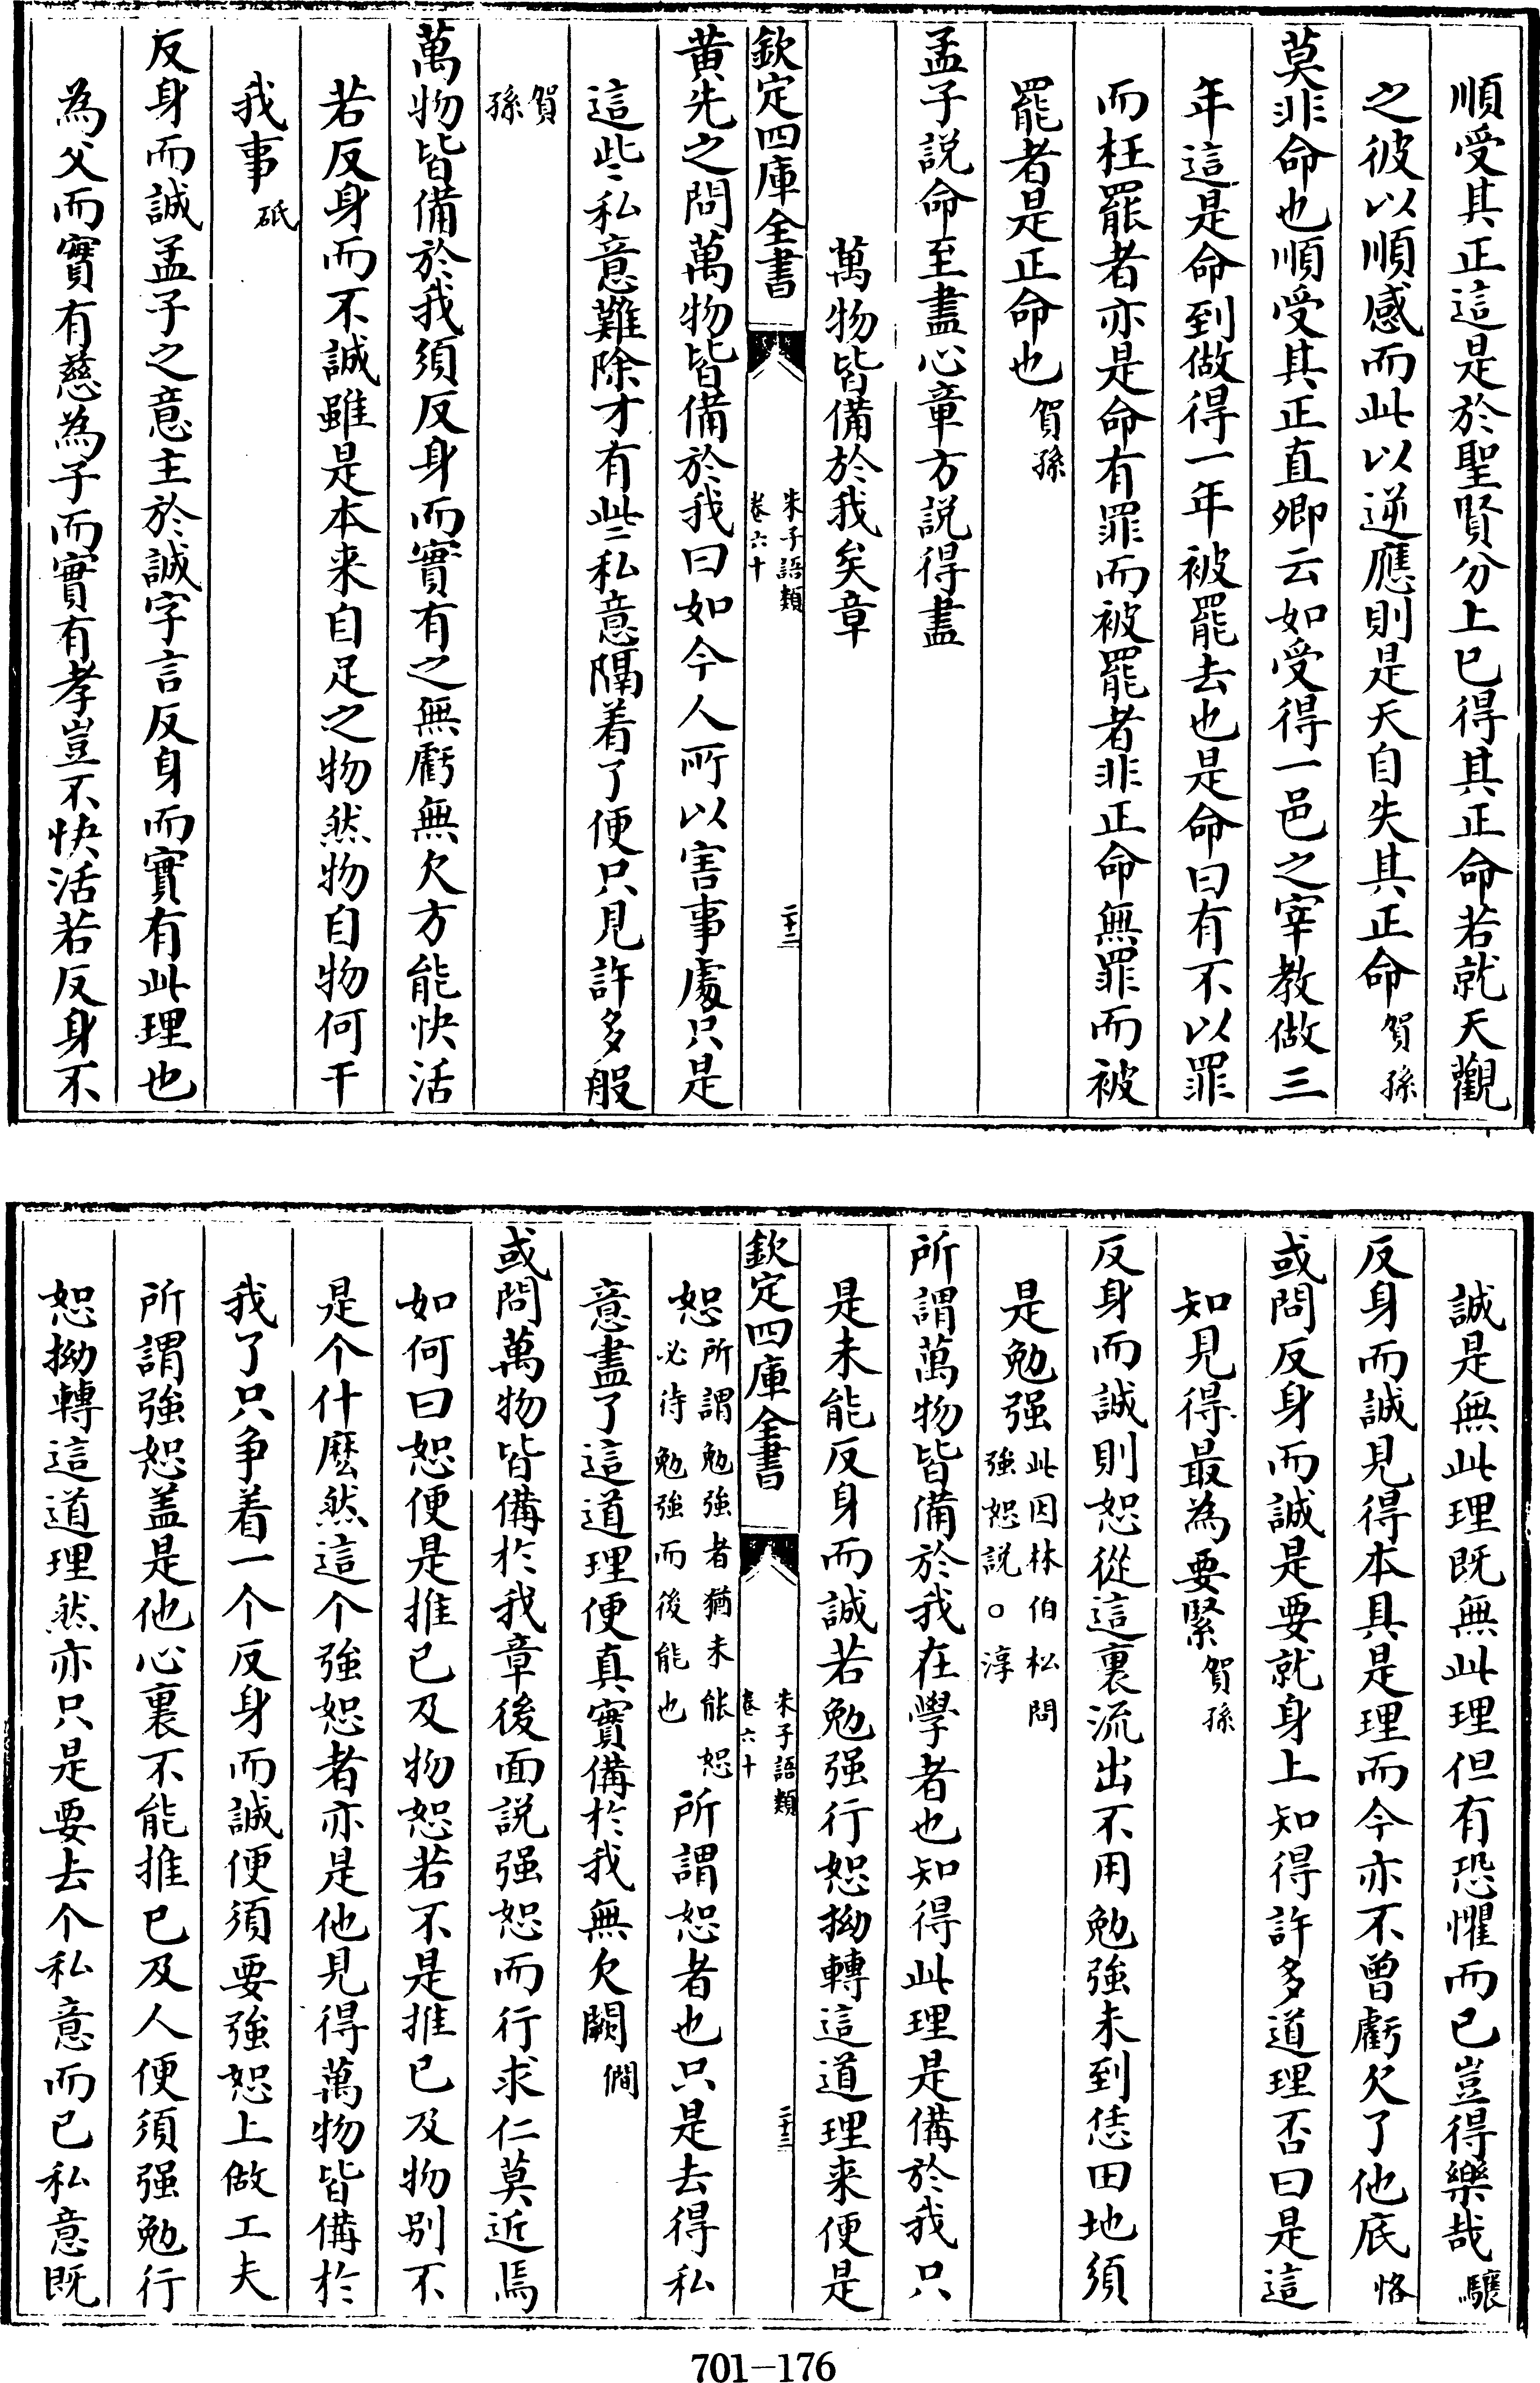 順受其正這是於聖賢分上已得其正命若就天觀
之彼以順感而此以逆應則是天自失其正命賀孫
莫非命也順受其正直卿云如受得一邑之宰教做三
年這是命到做得一年被罷去也是命曰有不以罪
而枉罷者亦是命有罪而被罷者非正命無罪而被
罷者是正命也賀孫
孟子説命至盡心章方説得盡
萬物皆備於我矣章
欽定四庫全書
朱子語類
卷六十
二十二
黄先之問萬物皆備於我曰如今人所以害事處只是
這些私意難除才有些私意隔着了便只見許多般
賀孫
萬物皆備於我須反身而實有之無虧無欠方能快活
若反身而不誠雖是本来自足之物然物自物何干
我事砥
反身而誠孟子之意主於誠字言反身而實有此理也
為父而實有慈為子而實有孝豈不快活若反身不
誠是無此理既無此理但有恐懼而已豈得樂哉驤
反身而誠見得本具是理而今亦不曾虧欠了他底恪
或問反身而誠是要就身上知得許多道理否曰是這
知見得最為要緊賀孫
反身而誠則恕從這裏流出不用勉強未到恁田地須
是勉强此因林伯松問強恕説○淳
所謂萬物皆備於我在學者也知得此理是備於我只
是未能反身而誠若勉强行恕拗轉這道理来便是
欽定四庫全書
朱子語類
卷六十
二十三
恕所謂勉強者猶未能恕必待勉強而後能也所謂恕者也只是去得私
意盡了這道理便真實備於我無欠闕僩
或問萬物皆備於我章後面説强恕而行求仁莫近焉
如何曰恕便是推已及物恕若不是推已及物别不
是个什麽然這个強恕者亦是他見得萬物皆備於
我了只争着一个反身而誠便須要強恕上做工夫
所謂強恕盖是他心裏不能推已及人便須强勉行
恕拗轉這道理然亦只是要去个私意而已私意既
701-176